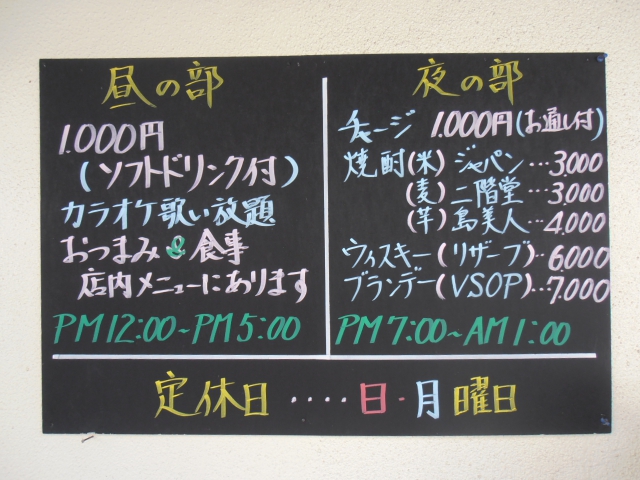 昼の部
1.000円
(ソフトドリンク付)
カラオケ歌い放題
おつまみ&食事
店内メニューにあります
PM12:00~PM5:00
夜の部
チャージ 1.000円(お通し付)
焼酎(米)ジャパン…3.000
(麦)二階堂…3.000
(芋)島美人…4.000
ウィスキー(リザーブ)…6.000
ブランデー(VSOP)…7.000
PM7:00~AM1:00
定休日‥‥日・月曜日